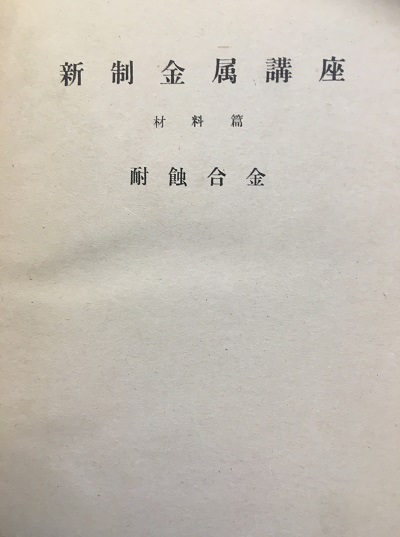 新制金属講座
材料篇
耐蝕合金